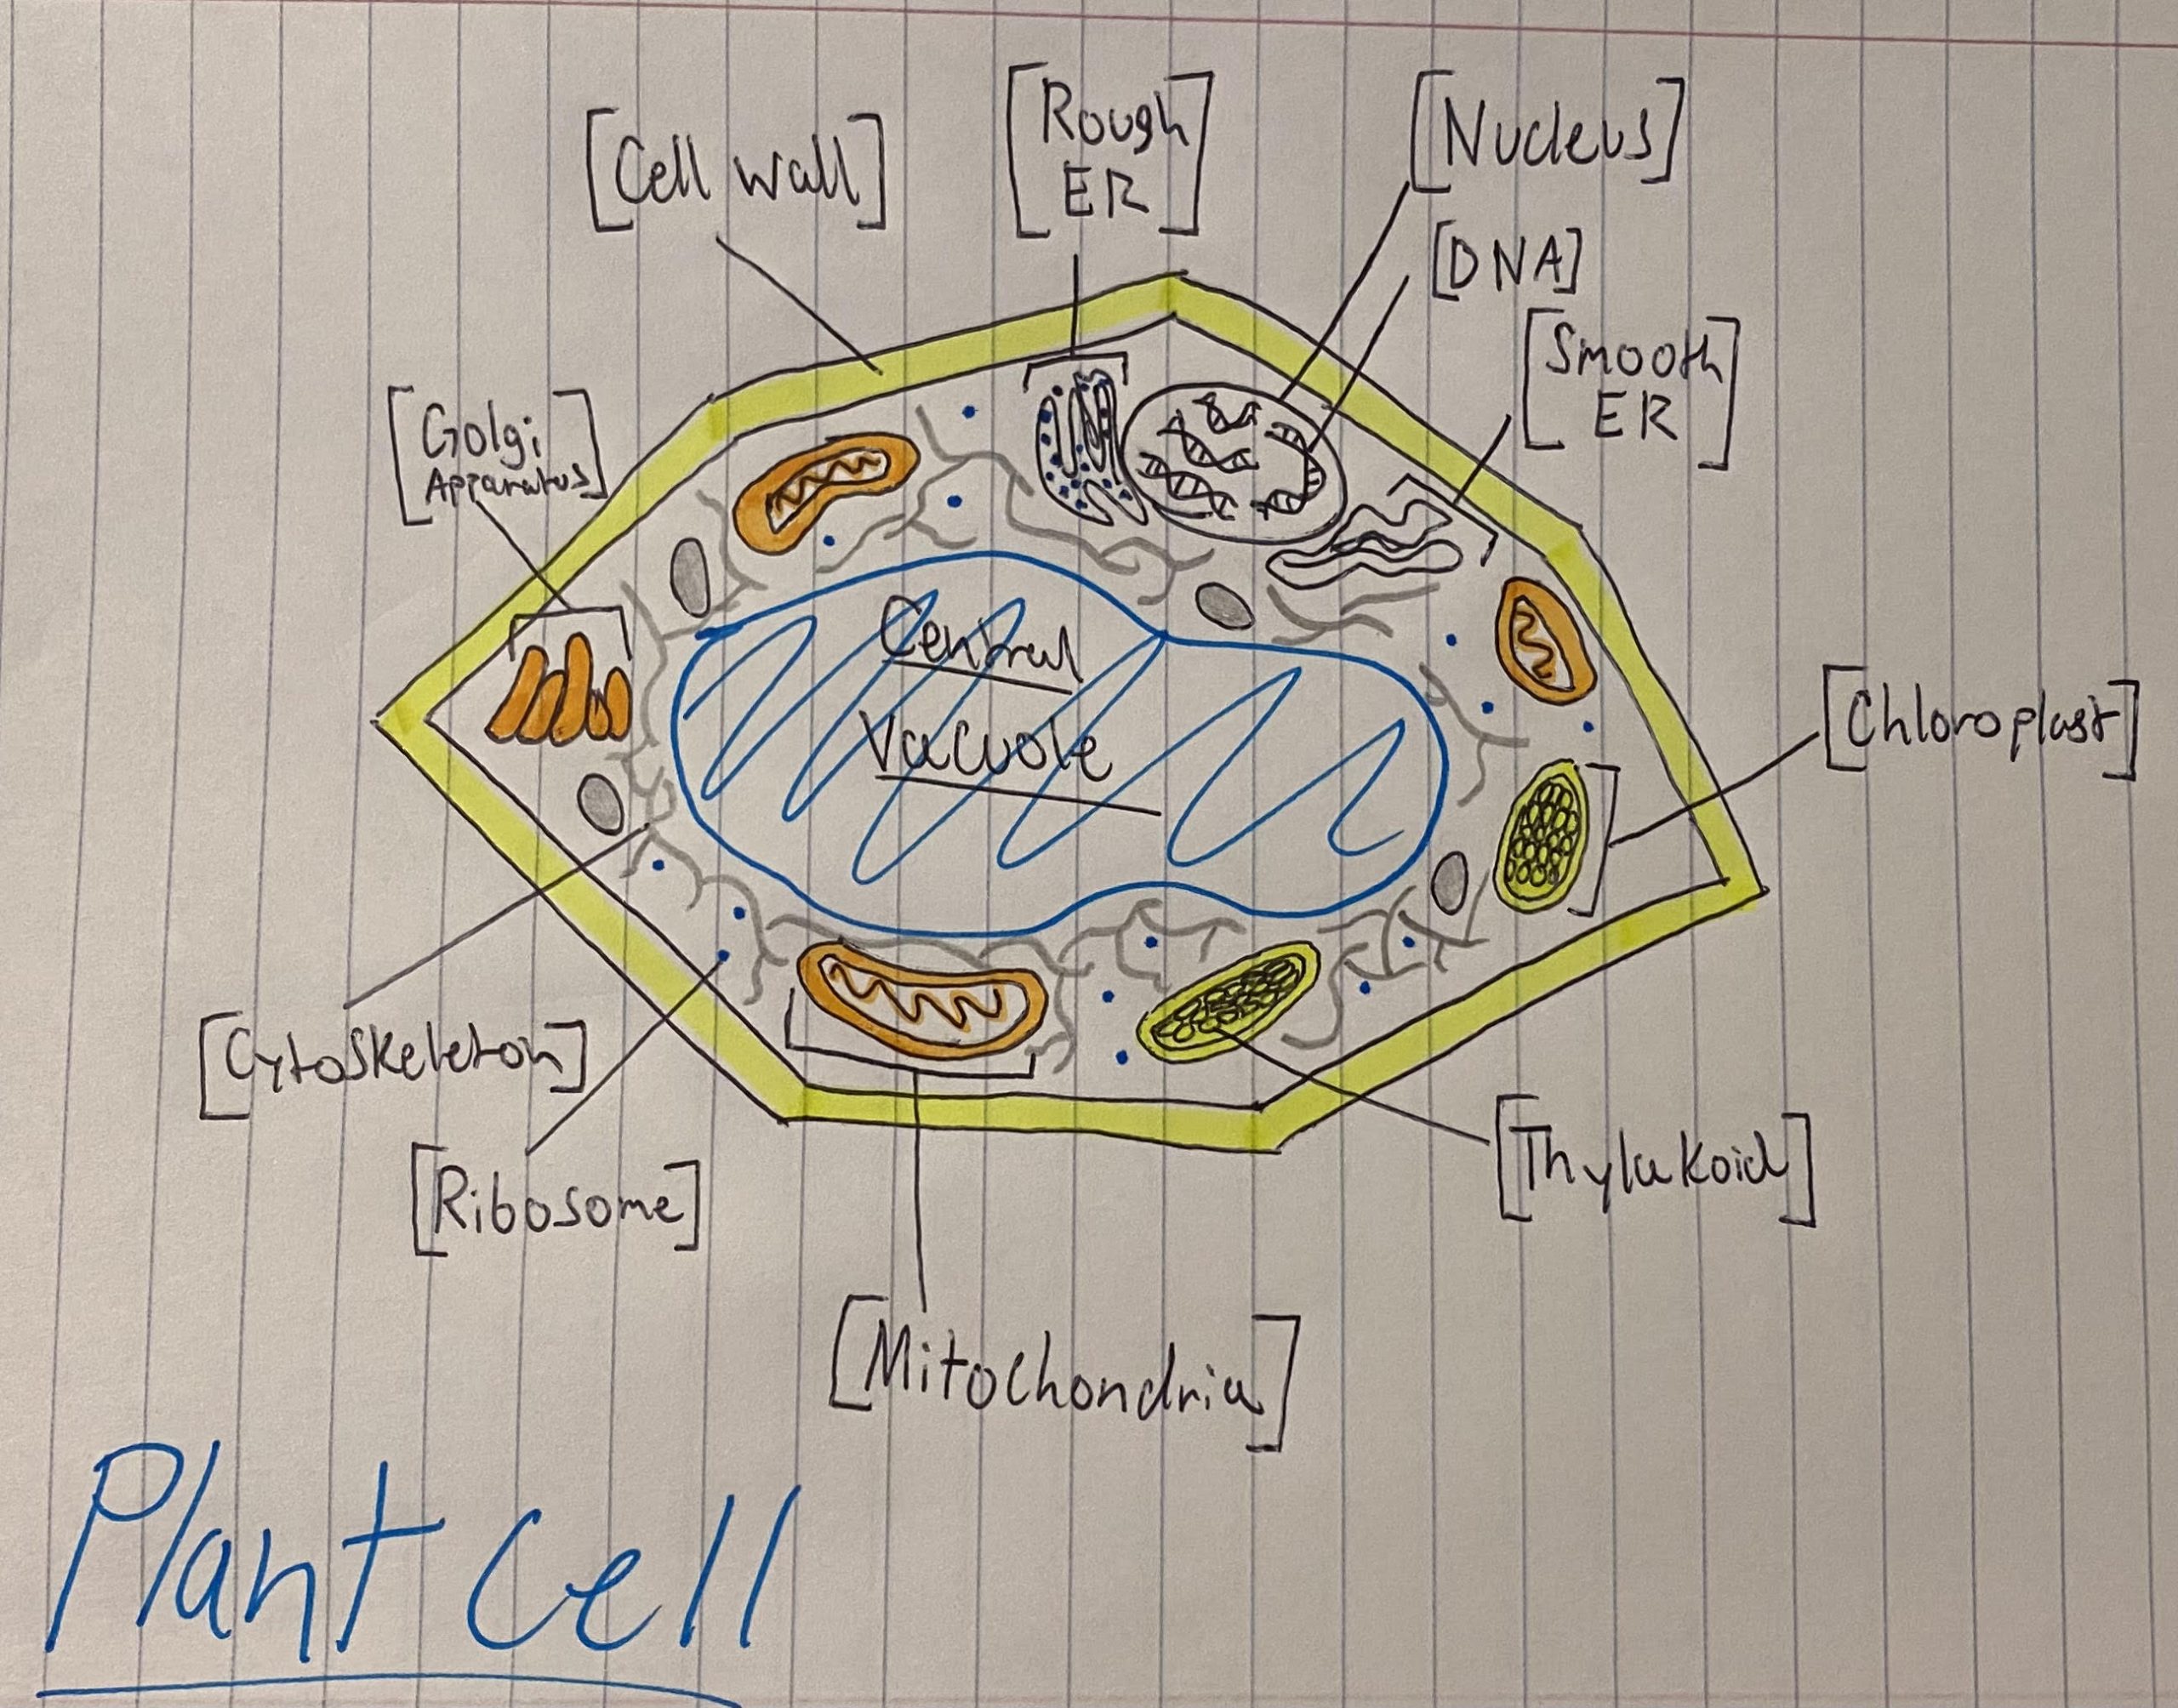 [Cell wall]
[Rough
ER]
[Nucleus]
[DNA]
[Smooth
ER]
[Golgi
Apparatus]
Central
Vacuole
[Chloroplast]
[Cytoskeleton]
[Ribosome]
[Thylakoid]
[Mitochondria]
Plant Cell